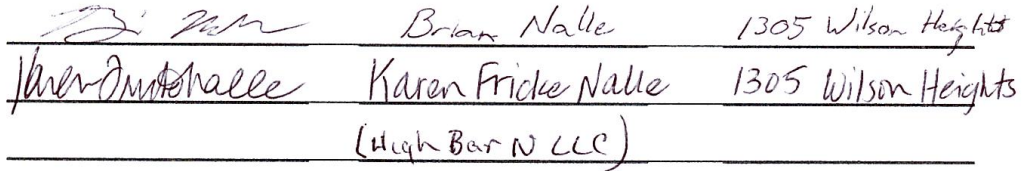 Brian Nalle 1305 Wilson Heights
Karen Fricke Nalle Karen Fricke Nalle 1305 Wilson Heights
(High Bar N LLC)